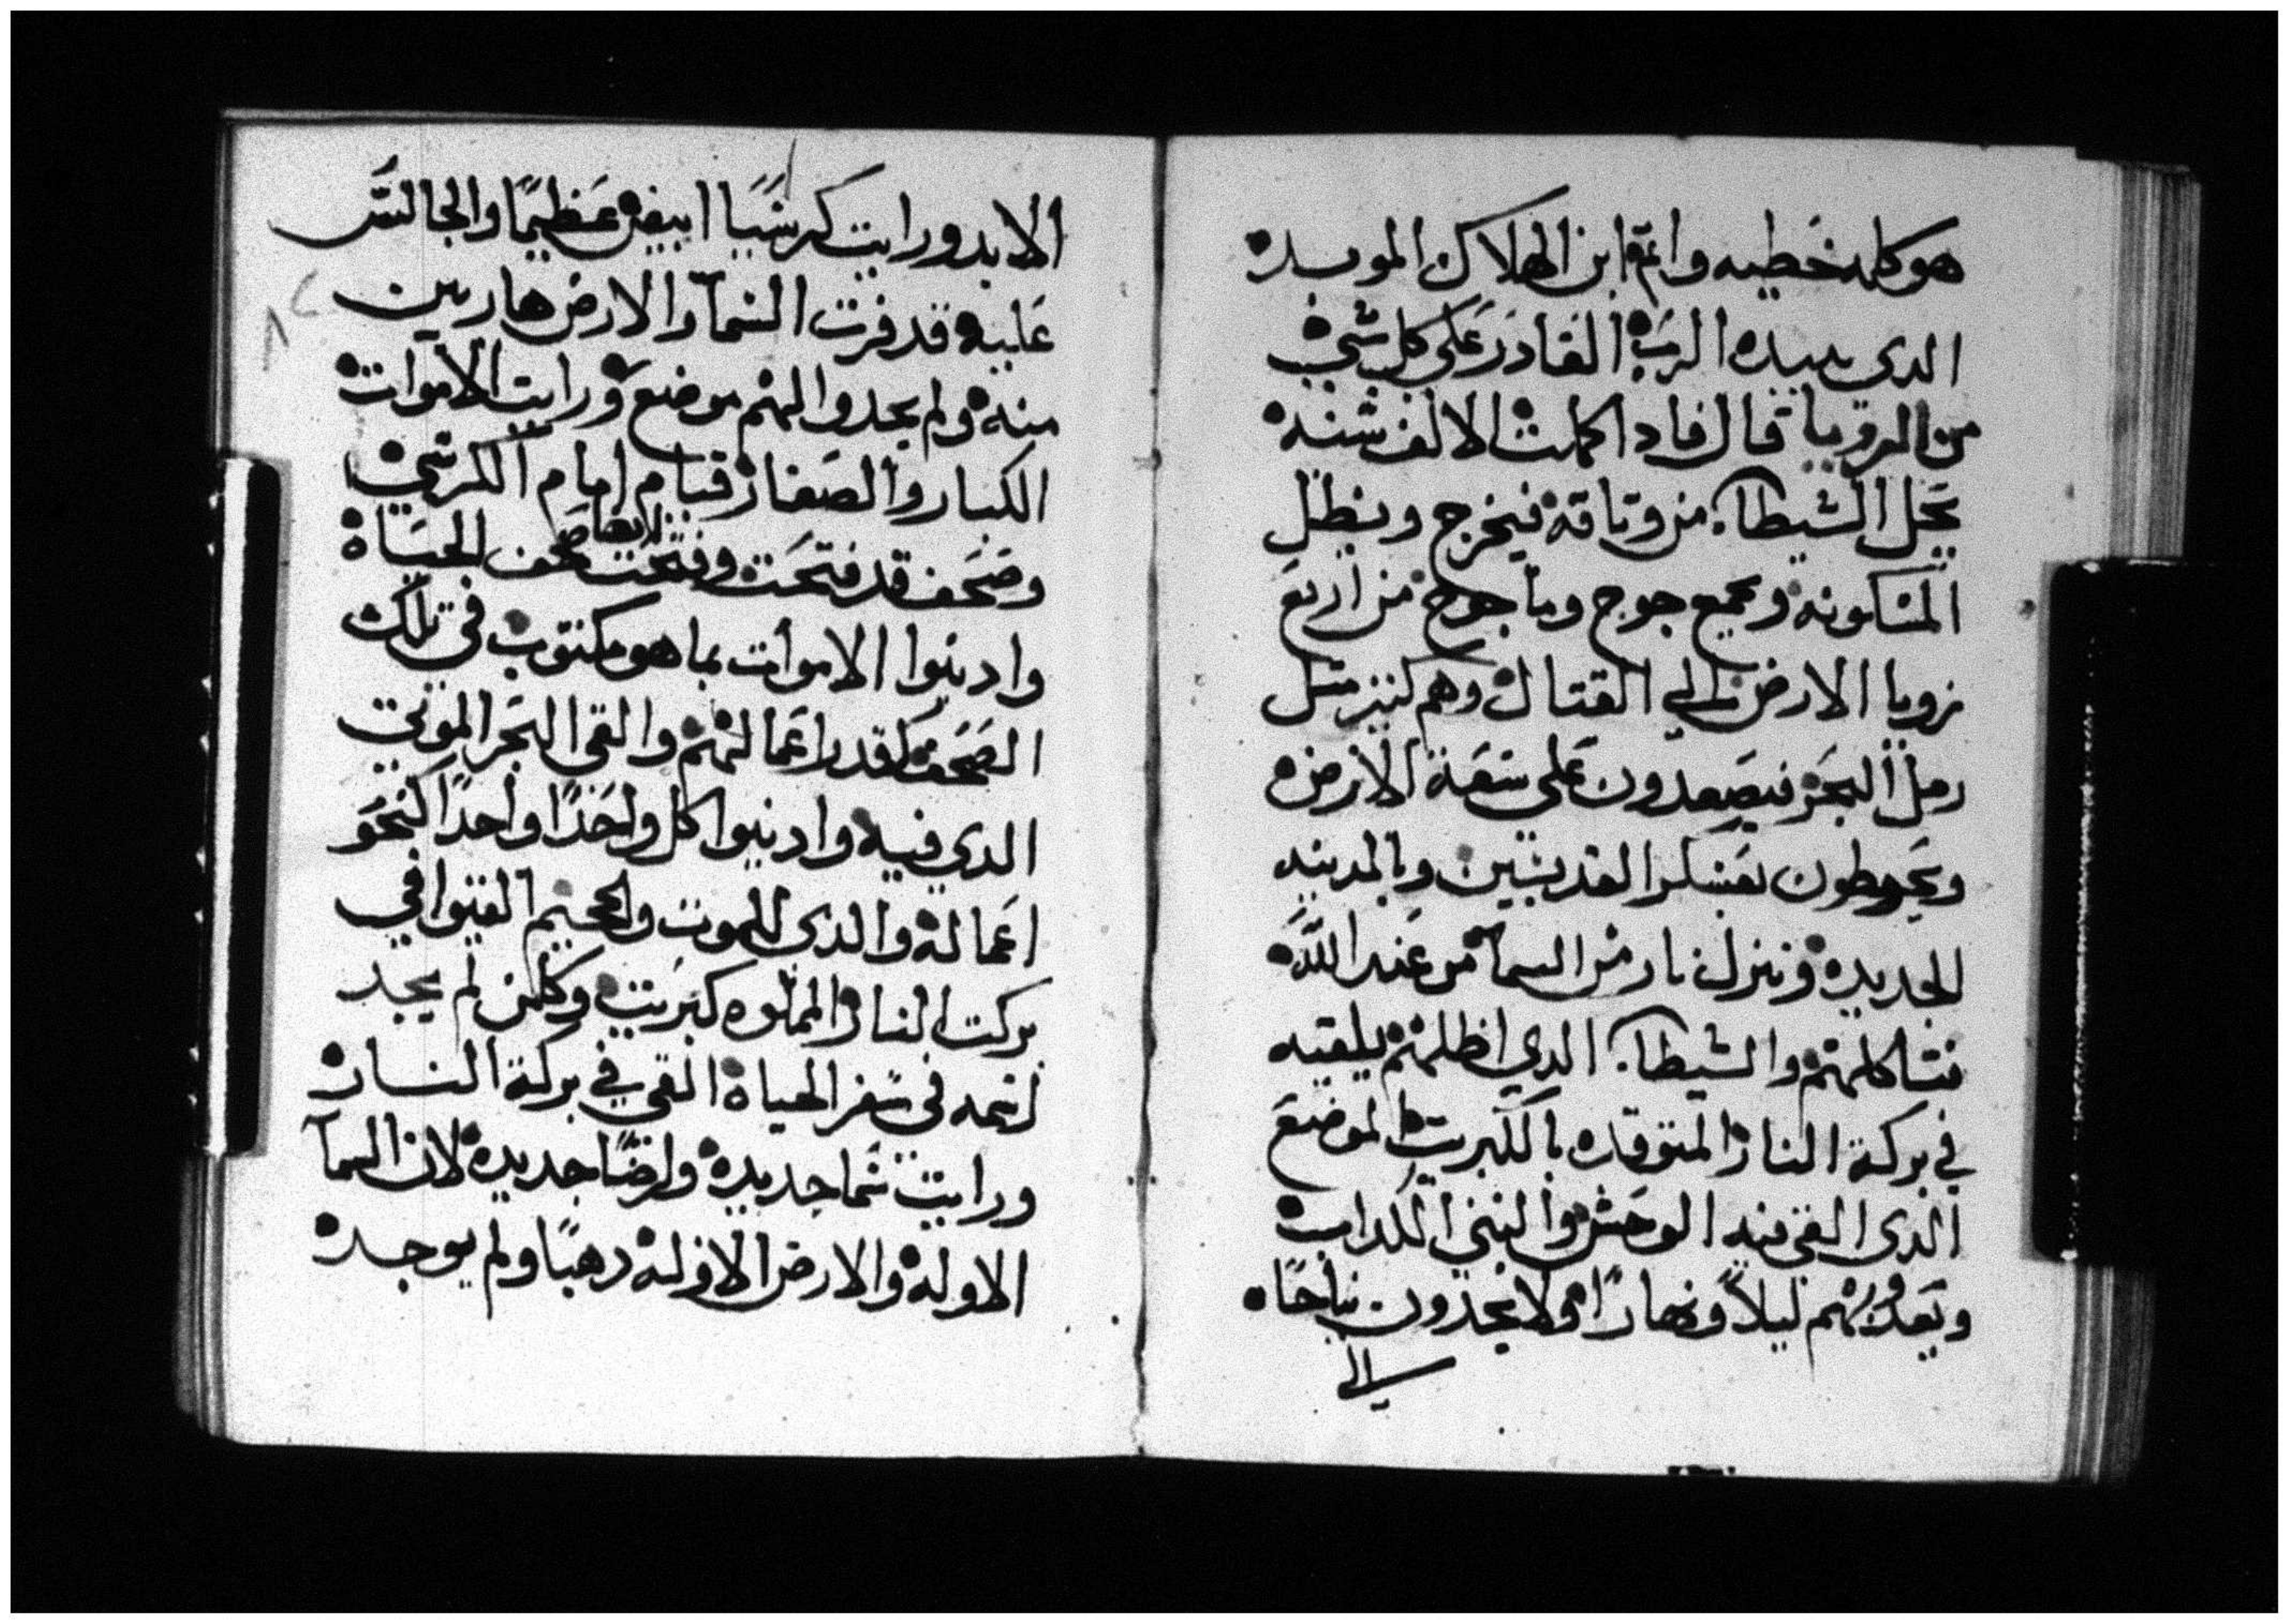 هو كله خطيه واثم ابن الهلاك الموبد
الدي بيده الرب القادر على كل شي
من الرويا قال فادا كملت الالف سنه
يحل الشيطان من وتاقه فيخرج ويظل
المسكونه ويجمع جوج وماجوج من اربع
زويا الارض الي القتال وهم كتير متل
رمل البحر فيصعدون على سعة الارض
ويحوطون بعسكر القديسين وبالمدينه
الجديده وينزل نار من السما من عند الله
فتاكلهم والشيطان الدي اظلهم يلقيه
في بركة النار المتوقده بالكبريت الموضع
الدى القي فيه الوحش والنبي الكداب
ويعدبونهم ليلاً ونهارًا ولا يجدون نياحًا
الي
الابد ورايت كرسيًا ابيض عظيمًا والجالس
عليه قد فرت السما والارض هاربين
منه ولم يجدوا لهم موضع ورايت الاموات
الكبار والصغار قيام امام الكرسي
وصحف قد فتحت وفتحت ايضا صحف الحياة
وادينوا الاموات بما هو مكتوب في تلك
الصحف كقدر اعمالهم والقى البحر الموتي
الدي فيه وادينوا كل واحدًا واحدًا كنحو
اعماله والدى للموت والجحيم القيوا في
بركت النار المملوه كبريت وكلمن لم يجد
اسمه في سفر الحياة القي في بركة النار
ورايت سما جديده وارضًا جديده لان السما
الاوله والارض الاوله دهبا ولم يوجد
٨٢